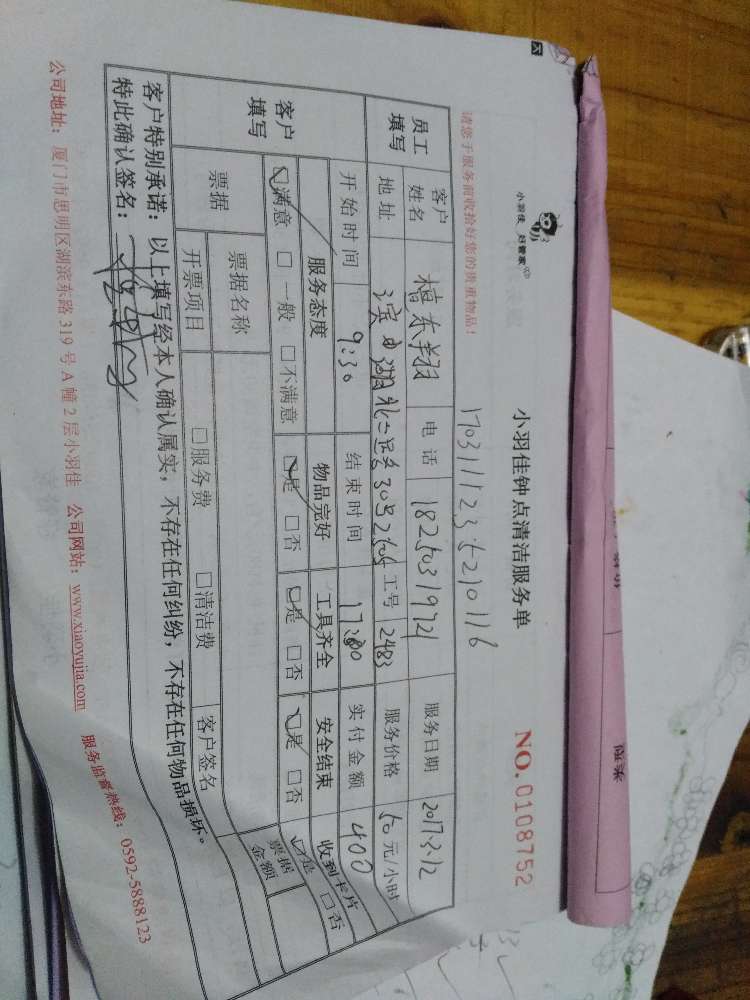 小羽佳 好管家
小羽佳钟点清洁服务单
NO.0108752
请您于服务前收拾好您的贵重物品!
1703111235210116
员工填写
客户姓名 植东羽 电话 18250319721 服务日期 2017.3.12
地址 工号 2483 服务价格 50元/小时
客户填写
开始时间 9:30 结束时间 17:30 实付金额 400
服务态度 物品完好 工具齐全 安全结束 收到卡片
☑满意 □一般 □不满意 ☑是 □否 ☑是 □否 ☑是 □否 ☑是 □否
票据 票据名称 票据金额
开票项目 □服务费 □清洁费 客户签名
客户特别承诺:以上填写经本人确认属实,不存在任何纠纷,不存在任何物品损坏。
特此确认签名:
公司地址:厦门市思明区湖滨东路319号A幢2层小羽佳 公司网站:www.xiaoyujia.com 服务监督热线:0592-5888123